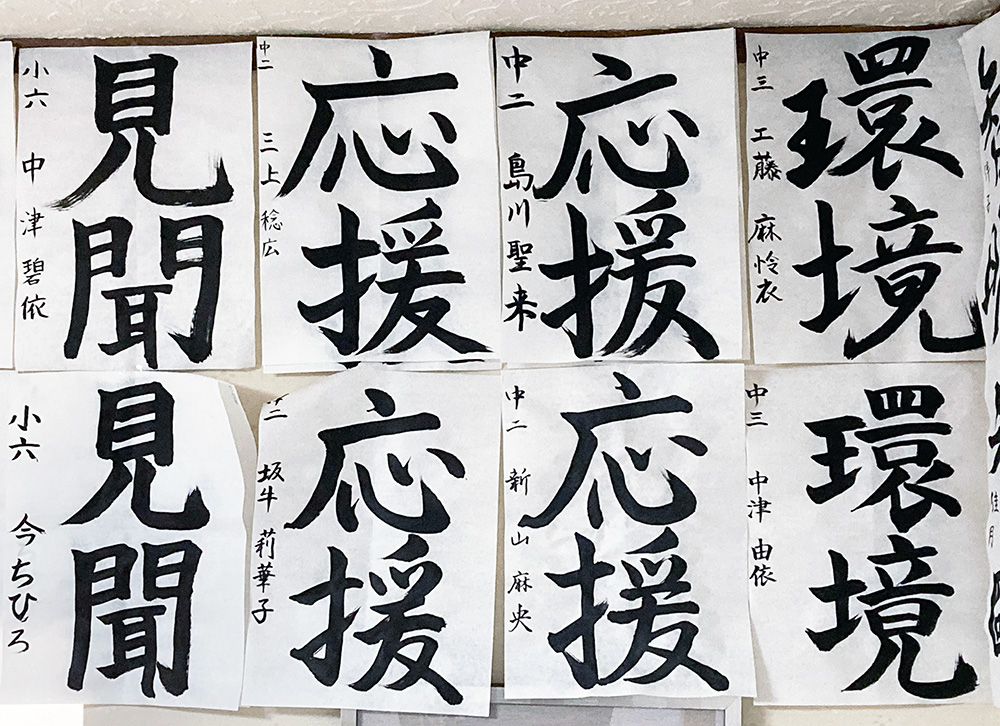 見聞
小六 中津碧依
応援
中二 三上稔広
応援
中二 島川聖来
環境
中三 工藤麻怜衣
見聞
小六 今ちひろ
応援
中二 坂牛莉華子
応援
中二 新山麻央
環境
中三 中津由依
佳月